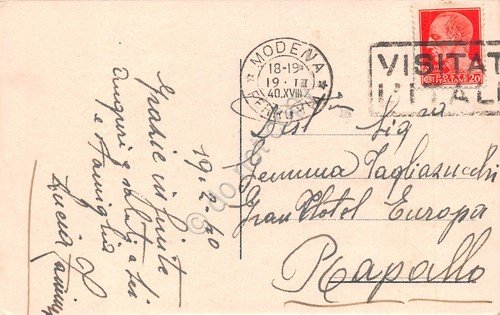 MODENA
18-19
19·II
40.XVIII
FERROVIA
VISITAT
L'ITALI
20
19.2.40
Grazie infinite
auguri e saluti a Lei
e famiglia
Lucia
Gent. Sig.ra
Gemma Tagliazucchi
Gran Hotel Europa
Rapallo